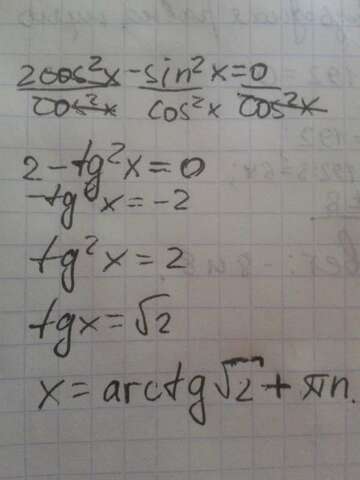 2cos²x - sin²x = 0
cos²x cos²x cos²x
2 - tg²x = 0
-tg²x = -2
tg²x = 2
tgx = √2
x = arctg√2 + πn.